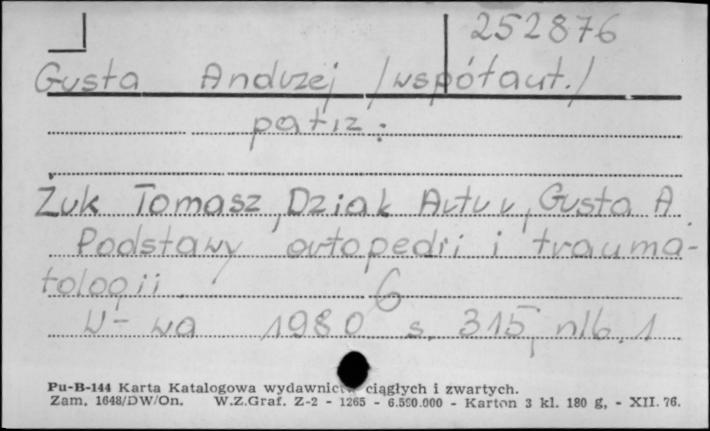 252876
Gusta Andrzej /współaut./
patrz:
Żuk Tomasz, Dziak Artur, Gusta A.
Podstawy ortopedii i trauma-
tologii 6
W-wa 1980 s. 315, nlb. 1
Pu-B-144 Karta Katalogowa wydawnictw ciągłych i zwartych.
Zam. 1648/DW/On. W.Z.Graf. Z-2 - 1265 - 6.590.000 - Karton 3 kl. 180 g, - XII. 76.